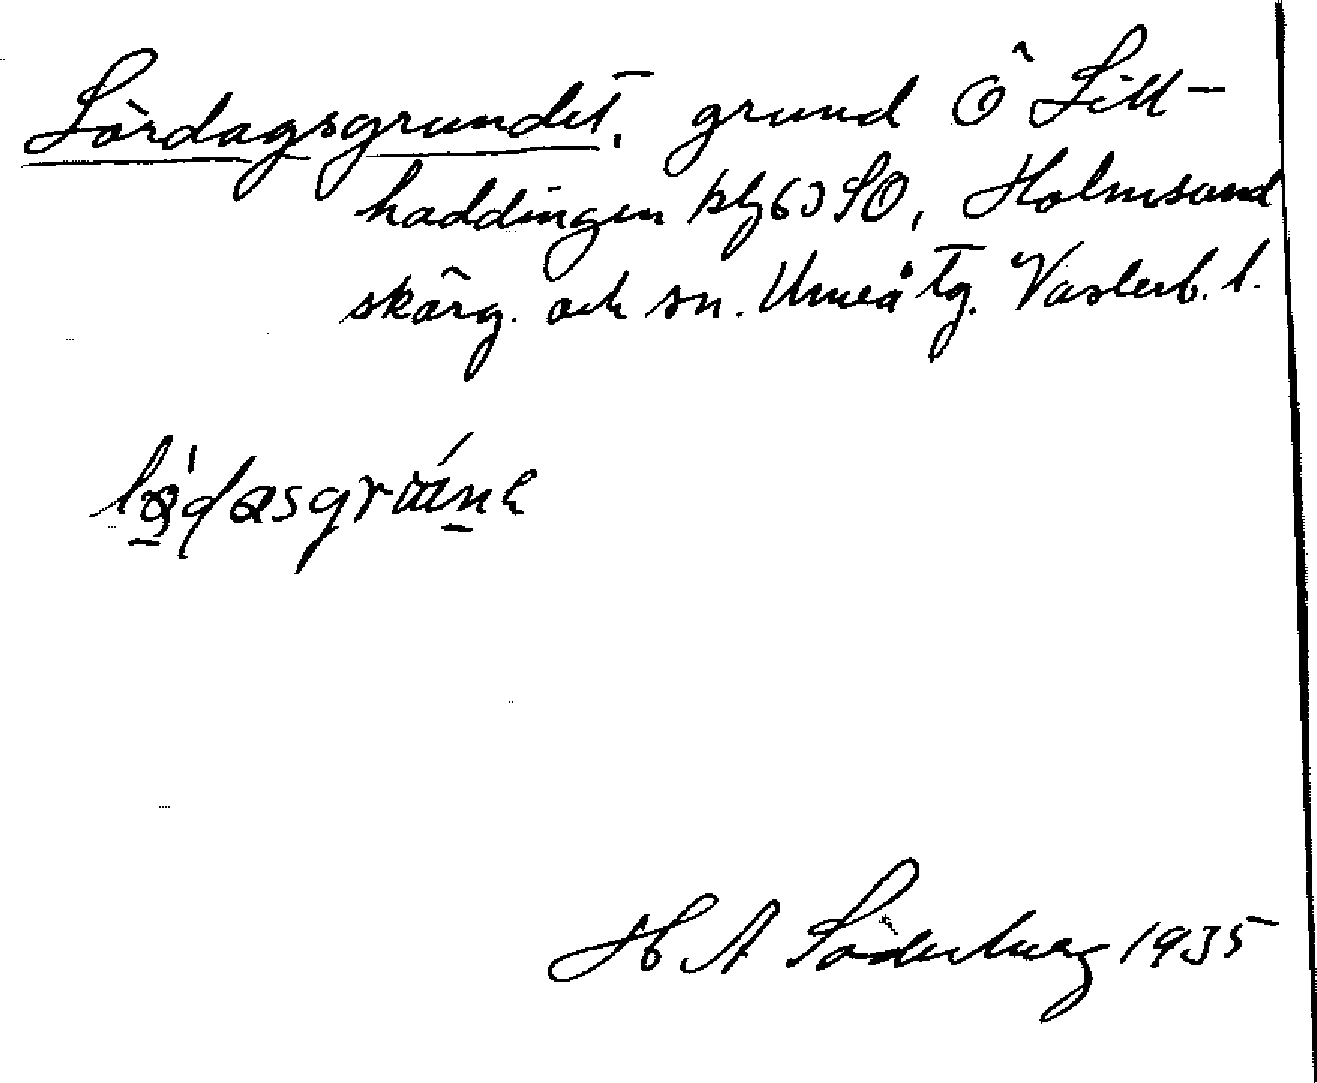 Lördagsgrundet, grund Ö Lill-
haddingen kbl 63 SO, Holmsund
skärg. och sn. Umeå tg. Västerb. l.
H A Söderberg 1935